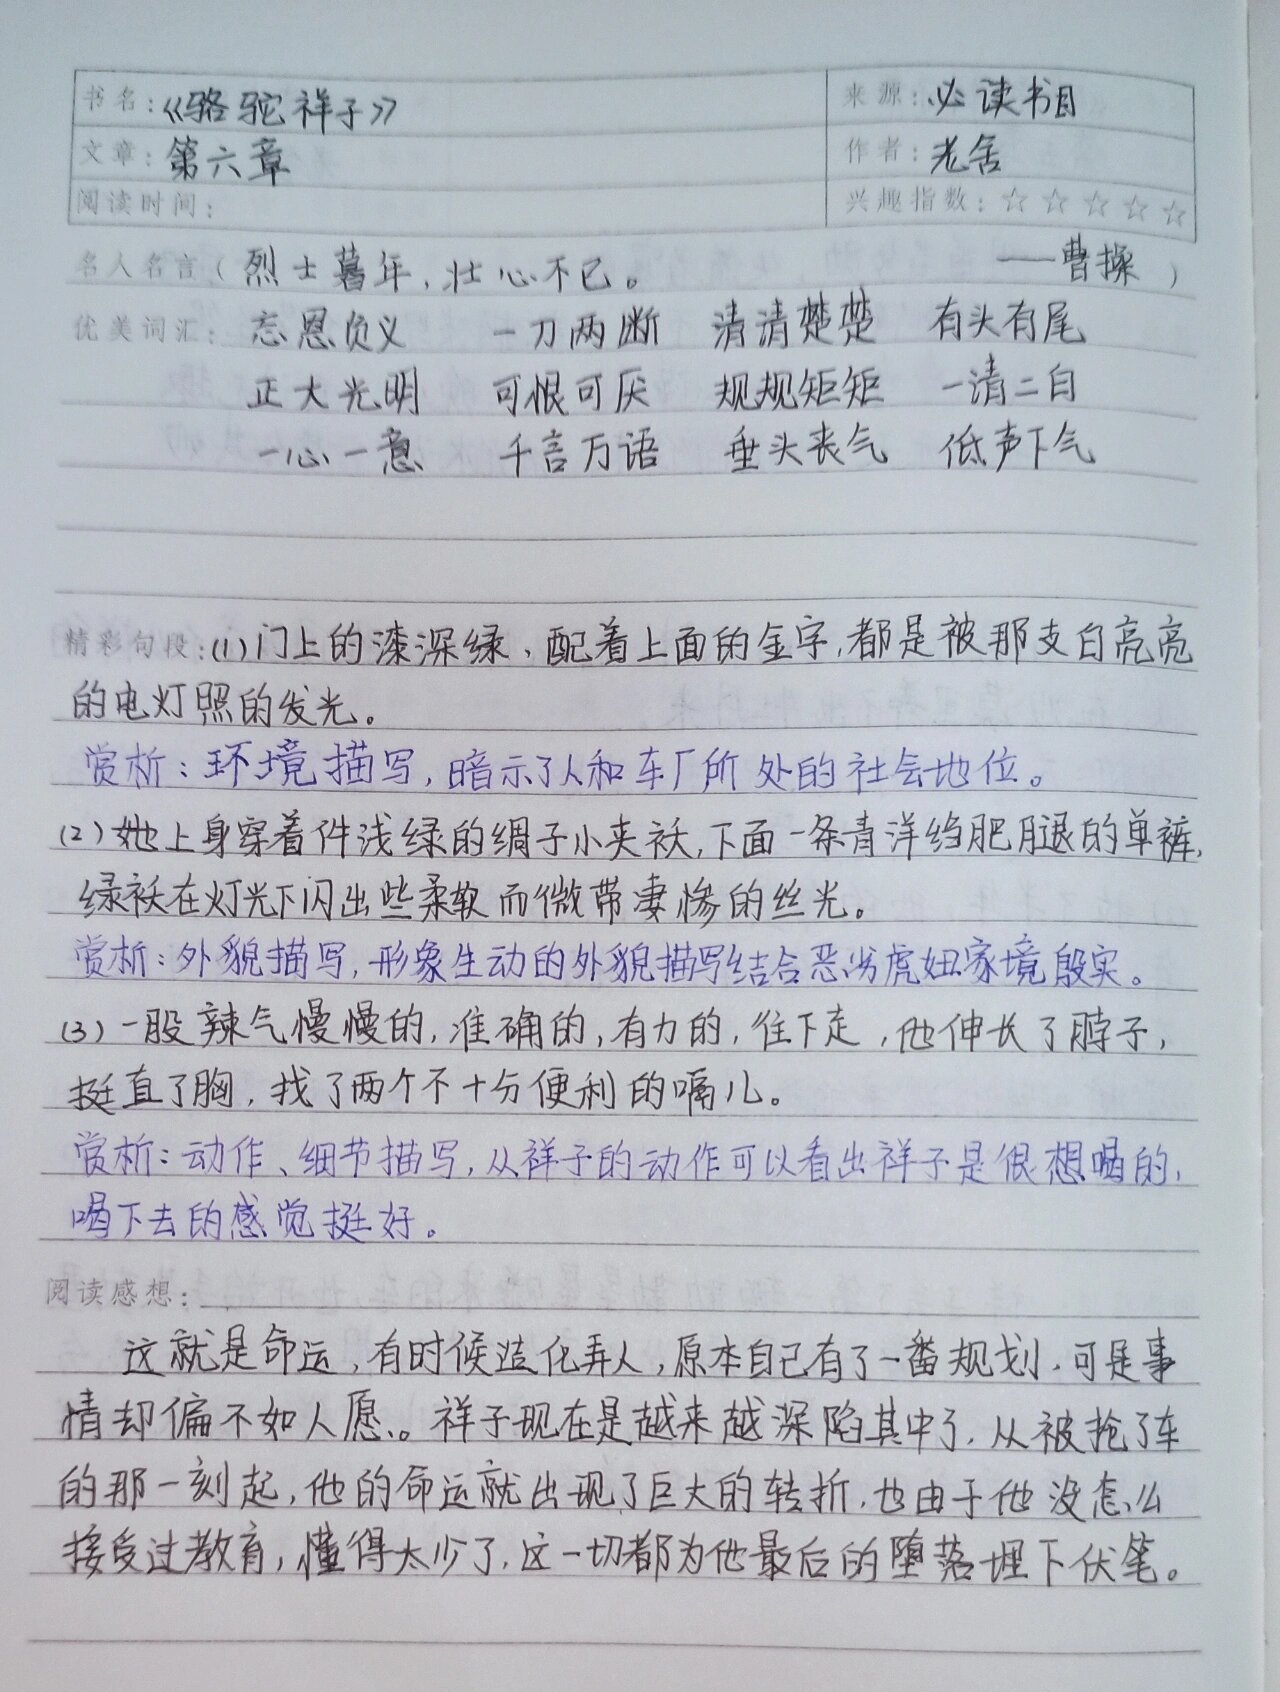 书名:《骆驼祥子》 来源:必读书目
文章:第六章 作者:老舍
阅读时间: 兴趣指数:☆☆☆☆☆
名人名言(烈士暮年,壮心不已。 ——曹操)
优美词汇:忘恩负义 一刀两断 清清楚楚 有头有尾
正大光明 可恨可厌 规规矩矩 一清二白
一心一意 千言万语 垂头丧气 低声下气
精彩句段:(1)门上的漆深绿、配着上面的金字,都是被那支白亮亮
的电灯照的发光。
赏析:环境描写,暗示了人和车厂所处的社会地位。
(2)她上身穿着件浅绿的绸子小夹袄,下面一条青洋绉肥腿的单裤,
绿袄在灯光下闪出些柔软而微带凄惨的丝光。
赏析:外貌描写,形象生动的外貌描写结合恶劣虎妞家境殷实。
(3)一股辣气慢慢的,准确的,有力的,往下走,他伸长了脖子,
挺直了胸,找了两个不十分便利的嗝儿。
赏析:动作、细节描写,从祥子的动作可以看出祥子是很想喝的,
喝下去的感觉挺好。
阅读感想:
这就是命运,有时候造化弄人,原本自己有了一番规划,可是事
情却偏不如人愿。祥子现在是越来越深陷其中了,从被抢了车
的那一刻起,他的命运就出现了巨大的转折,也由于他没怎么
接受过教育,懂得太少了,这一切都为他最后的堕落埋下伏笔。